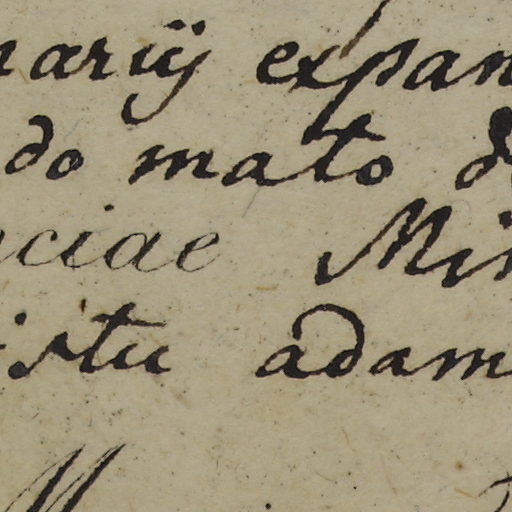 narij expan
do mato d
nciae Min
istu adam
M